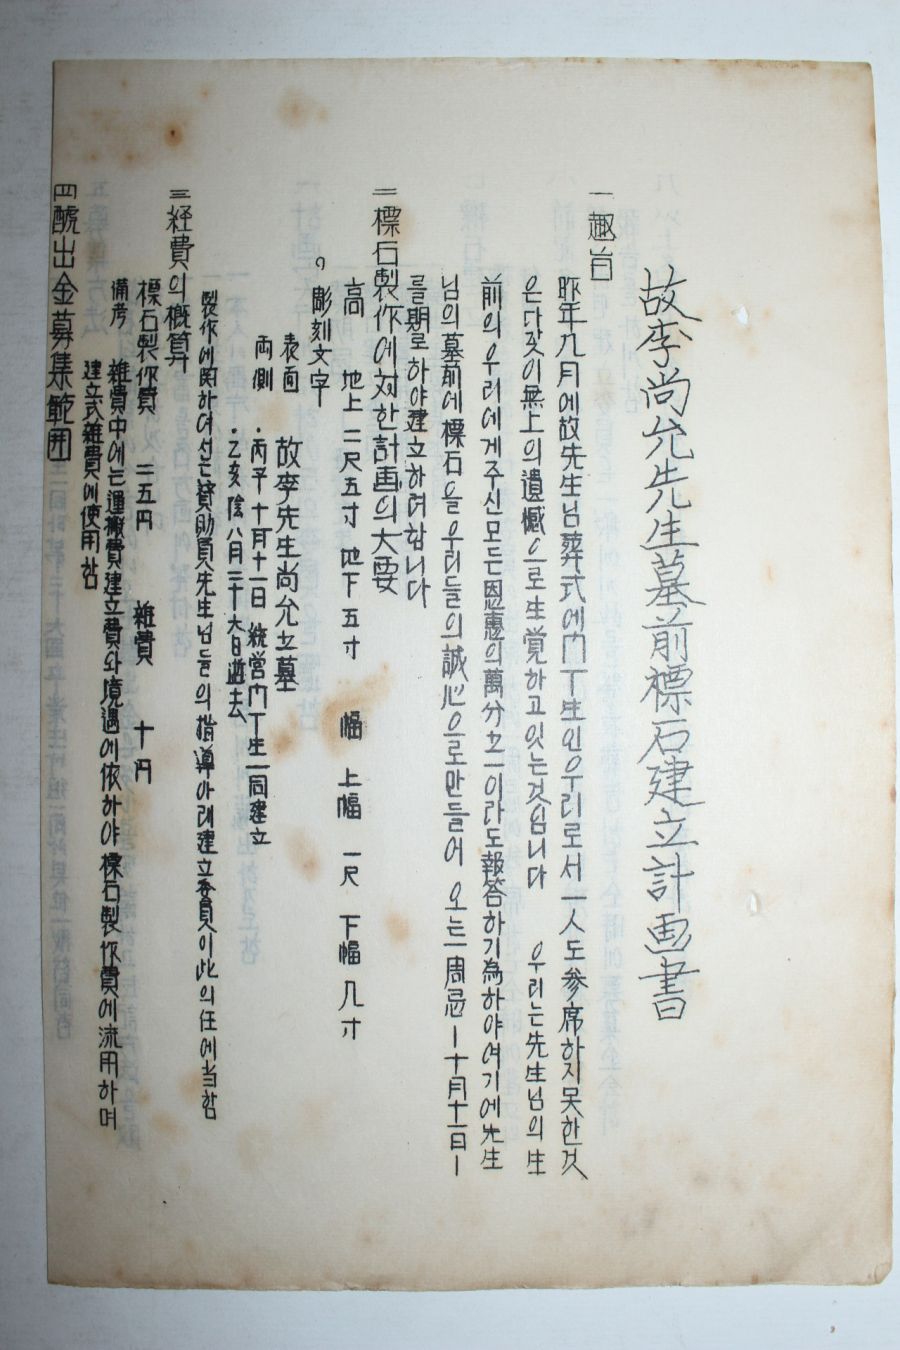 故李尚允先生墓前標石建立計画書
一 趣旨
昨年九月에故先生님葬式에門下生인우리로서一人도參席하지못한것
은다갗이無上의遺憾으로生覚하고잇는것임니다 우리는先生님의生
前의우리에게주신모든恩惠의萬分之一이라도報答하기為하야여기에先生
님의墓前에標石을우리들의誠心으로만들어 오는一周忌ー十月十一日ー
를期로하야建立하려함니다
二 標石製作에対한計画의大要
高 地上 二尺五寸 地下 五寸 幅 上幅 一尺 下幅 八寸
彫刻文字
表面 故李先生尚允之墓
両側 ・丙子十月十一日 統営門下生一同建立
・乙亥陰八月二十六日逝去
製作에関하여서는賛助員先生님들의指導아래建立委員이此의任에当함
三 経費의概算
標石製作費 二五円 雑費 十円
備考 雑費中에는運搬費建立費와境遇에依하야標石製作費에流用하며
建立式雑費에使用함
四 醵出金募集範囲